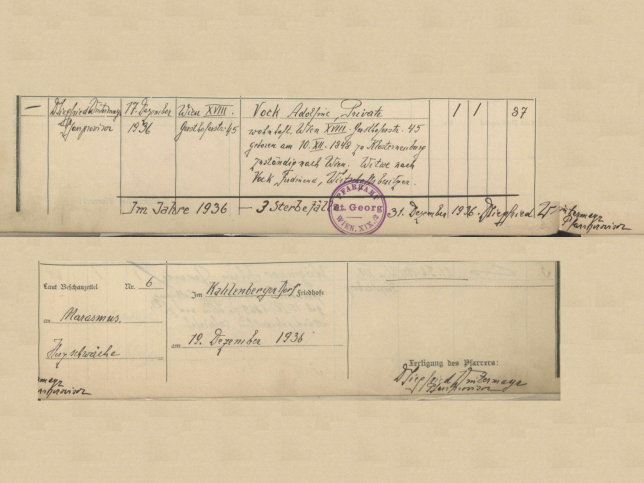 — D Siegfried Wintermayr 17. Dezember Wien XVIII. Vock Adolfine, Private 1 1 87
Pfarrprovisor 1936 45 wohnhaft. Wien XVIII. 45
geboren am 10. XII. 1848 zu Klosterneuburg
zuständig nach Wien. Witwe nach
Vock Ferdinand, Wirtschaftsbesitzer.
Im Jahre 1936 — 3 Sterbefälle 31. Dezember 1936. D Siegfried Wintermayr
Pfarrprovisor
PFARRAMT
St. Georg
WIEN, XIX.
Laut Beschauzettel Nr. 6
an Marasmus.
Herzschwäche
Im Kahlenbergerdorf Friedhofe
am 19. Dezember 1936
Fertigung des Pfarrers:
D Siegfried Wintermayr
Pfarrprovisor